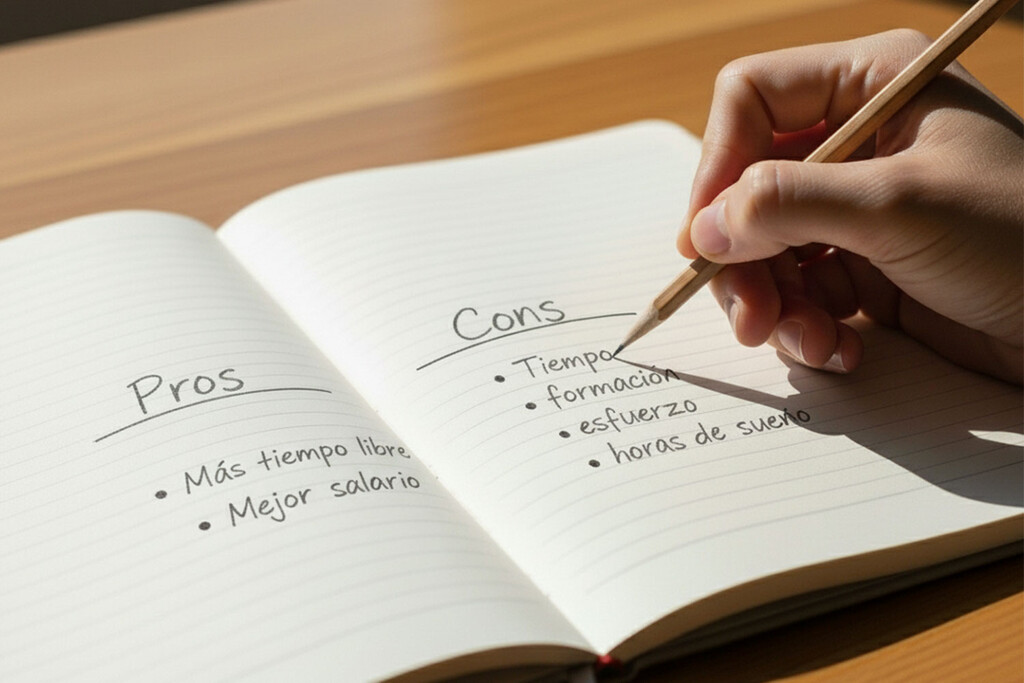 Pros
• Más tiempo libre
• Mejor salario
Cons
• Tiempo
• formación
• esfuerzo
• horas de sueño